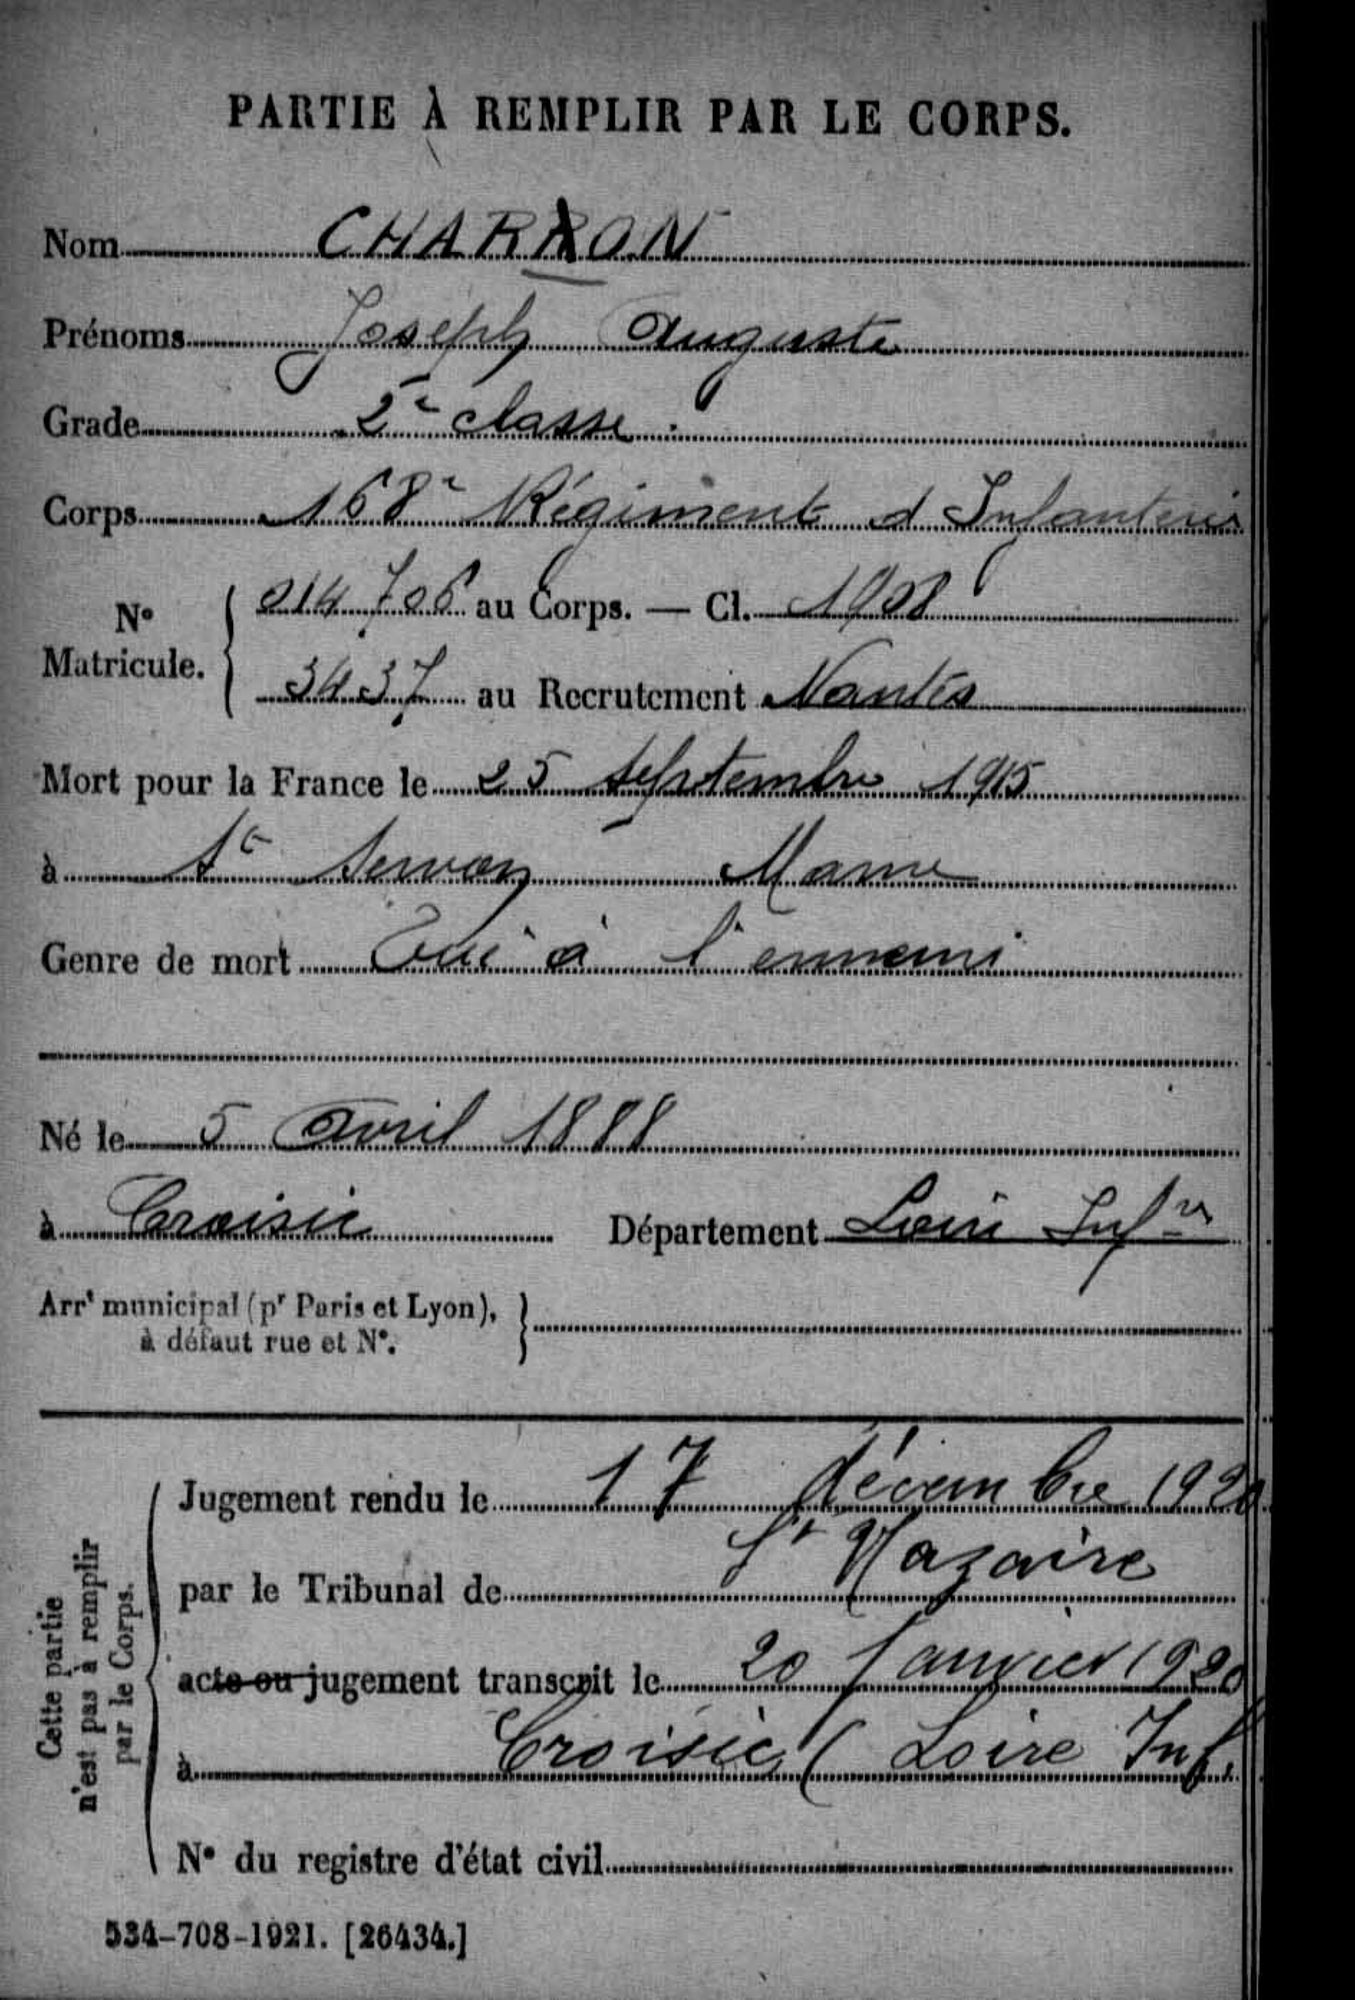 PARTIE À REMPLIR PAR LE CORPS.
Nom CHARRON
Prénoms Joseph Auguste
Grade 2e classe
Corps 168e Régiment d Infanterie
No Matricule. 014706 au Corps. — Cl. 1908
3437 au Recrutement Nantes
Mort pour la France le 25 septembre 1915
à St Servon Marne
Genre de mort Tué à l'ennemi
Né le 5 avril 1888
à Croisic Département Loire Infre
Arrt municipal (pr Paris et Lyon),
à défaut rue et No.
Cette partie
n'est pas à remplir
par le Corps.
Jugement rendu le 17 décembre 1920
par le Tribunal de St Nazaire
acte ou jugement transcrit le 20 Janvier 1920
à Croisic (Loire Inf.
No du registre d'état civil
534-708-1921. [26434.]